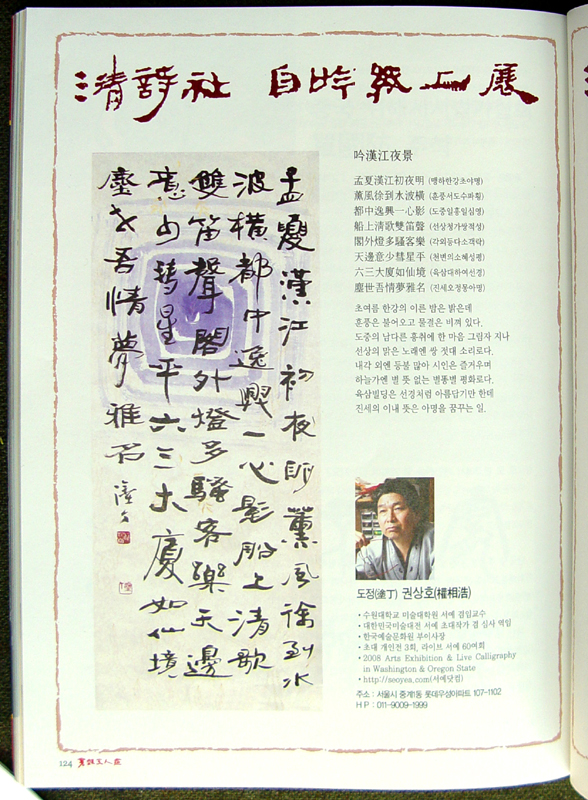 清詩社 自吟紙上展
孟夏漢江初夜明薰風徐到水
波橫都中逸興一心影船上清歌
雙笛聲閣外燈多騷客樂天邊
意少彗星平六三大廈如仙境
塵世吾情夢雅名
吟漢江夜景
孟夏漢江初夜明 (맹하한강초야명)
薰風徐到水波橫 (훈풍서도수파횡)
都中逸興一心影 (도중일흥일심영)
船上淸歌雙笛聲 (선상청가쌍적성)
閣外燈多騷客樂 (각외등다소객락)
天邊意少彗星平 (천변의소혜성평)
六三大廈如仙境 (육삼대하여선경)
塵世吾情夢雅名 (진세오정몽아명)
초여름 한강의 이른 밤은 밝은데
훈풍은 불어오고 물결은 비껴 있다.
도중의 남다른 흥취에 한 마음 그림자 지나
선상의 맑은 노래엔 쌍 젓대 소리로다.
내각 외엔 등불 많아 시인은 즐거우며
하늘가엔 별 뜻 없는 별똥별 평화로다.
육삼빌딩은 선경처럼 아름답기만 한데
진세의 이내 뜻은 아명을 꿈꾸는 일.
도정(塗丁) 권상호(權相浩)
• 수원대학교 미술대학원 서예 겸임교수
• 대한민국미술대전 서예 초대작가 겸 심사 역임
• 한국예술문화원 부이사장
• 초대 개인전 3회, 라이브 서예 60여회
• 2008 Arts Exhibition & Live Calligraphy
in Washington & Oregon State
• http://seoyea.com(서예닷컴)
주소 : 서울시 중계1동 롯데우성아파트 107-1102
H P : 011-9009-1999
124